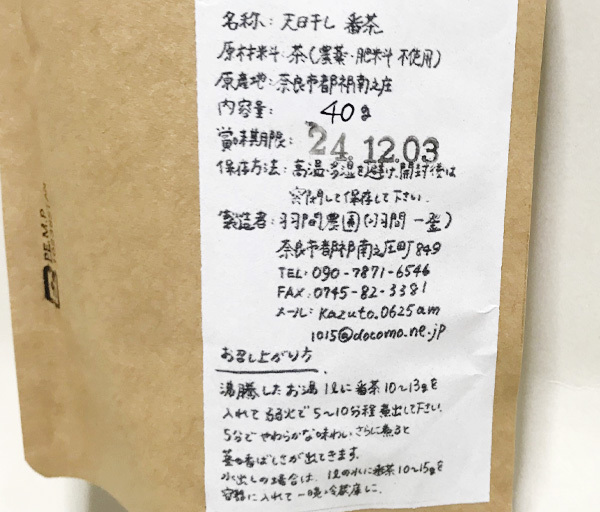 名称: 天日干し 番茶
原材料: 茶(農薬・肥料不使用)
原産地: 奈良市都祁南之庄
内容量: 40g
賞味期限: 24.12.03
保存方法: 高温・多湿を避け、開封後は
密閉して保存して下さい.
製造者: 羽間農園(羽間 一登)
奈良市都祁南之庄町849
TEL: 090-7871-6546
FAX: 0745-82-3381
メール: kazuto.0625am
1015@docomo.ne.jp
お召し上がり方
沸騰したお湯 1ℓに番茶10〜13gを
入れて 弱火で5〜10分程煮出して下さい.
5分でやわらかな味わい、さらに煮ると
茎の香ばしさが出てきます.
水出しの場合は、1ℓの水に番茶10〜15gを
容器に入れて一晩冷蔵庫に.
PE.M.P